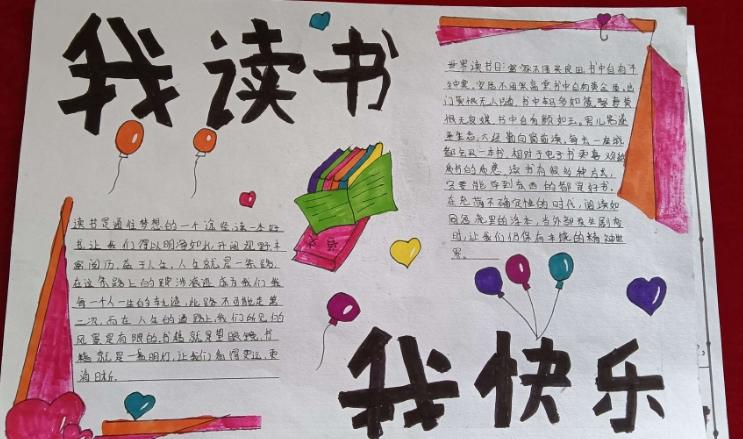 我读书
世界读书日:富家不用买良田,书中自有千
钟粟,安居不用架高堂,书中自有黄金屋,出
门莫恨无人随,书中车马多如簇,娶妻莫
恨无良媒,书中自有颜如玉。男儿若遂
平生志,六经勤向窗前读,每去一座城
都会买一本书,相对于电子书更喜欢纸
质书的质感,读书有很多种方式,
只要能学到东西的都是好书,
在充满不确定性的时代,阅读如
同
时,让我们仍保有丰饶的精神世
界。
读书是通往梦想的一个途径,读一本好
书,让我们得以明净如水,开阔视野,丰
富阅历,益于人生,人生就是一条路,
在这条路上的跋涉痕迹成为我们
每一个人一生的轨迹,此路不可能走第
二次,而在人生的道路上,我们所见的
风景是有限的,书籍就是望眼镜,书
籍就是一盏明灯,让我们看得更远,更
清晰。
我快乐